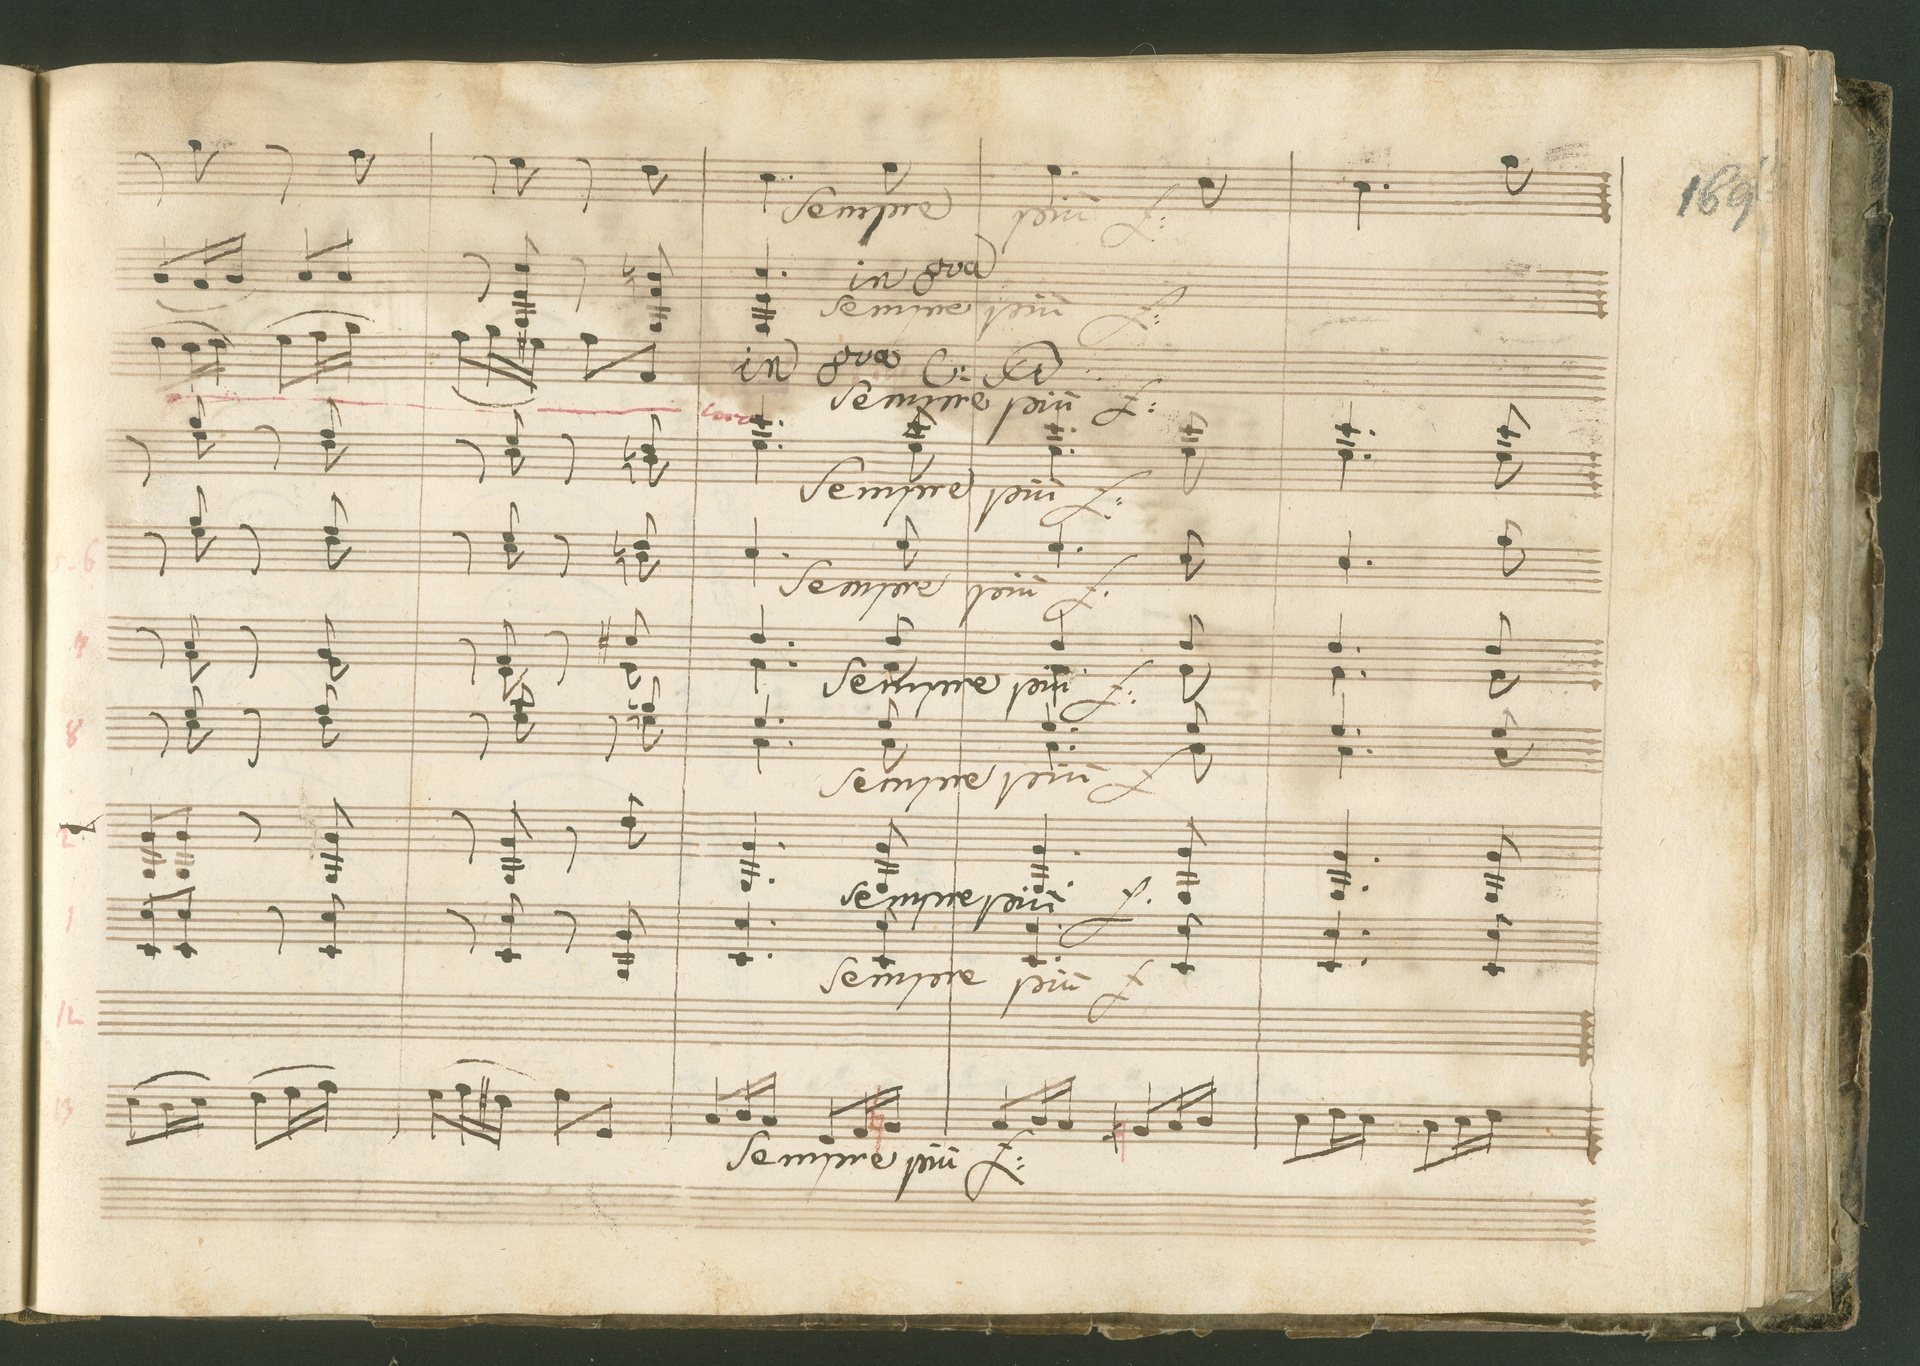 169
Sempre più f:
in 8va
Sempre più f:
in 8va C:
Sempre più f:
Sempre più f:
5-6
Sempre più f.
4
Sempre più f:
8
Sempre più f
2
Sempre più f.
1
Sempre più f
12
13
Sempre più f: